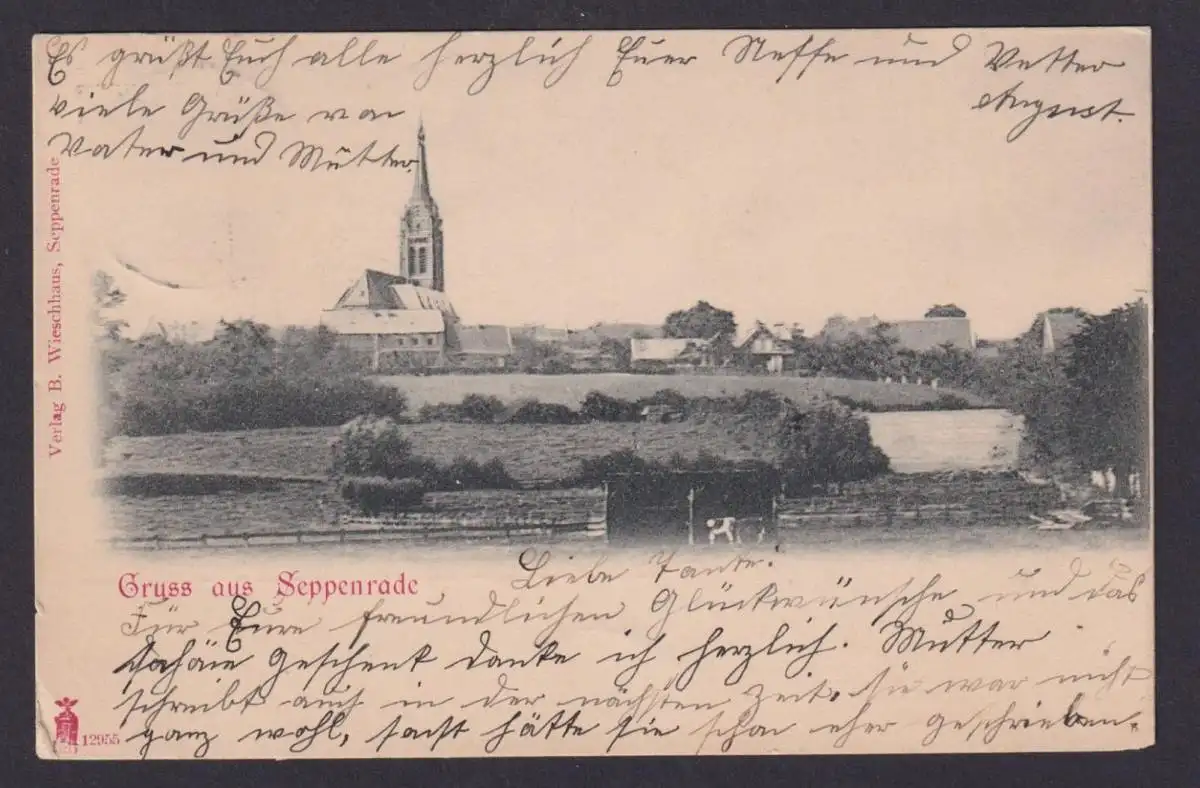 Es grüßt Euch alle herzlich Euer Neffe und Vetter
August.
viele Grüße von
Vater und Mutter.
Verlag B. Wieschhaus, Seppenrade
Gruss aus Seppenrade
Liebe Tante!
Für Eure freundlichen Glückwünsche und das
schöne Geschenk danke ich herzlich. Mutter
schreibt auch in der nächsten Zeit. sie war nicht
ganz wohl, sonst hätte sie schon eher geschrieben.
12955